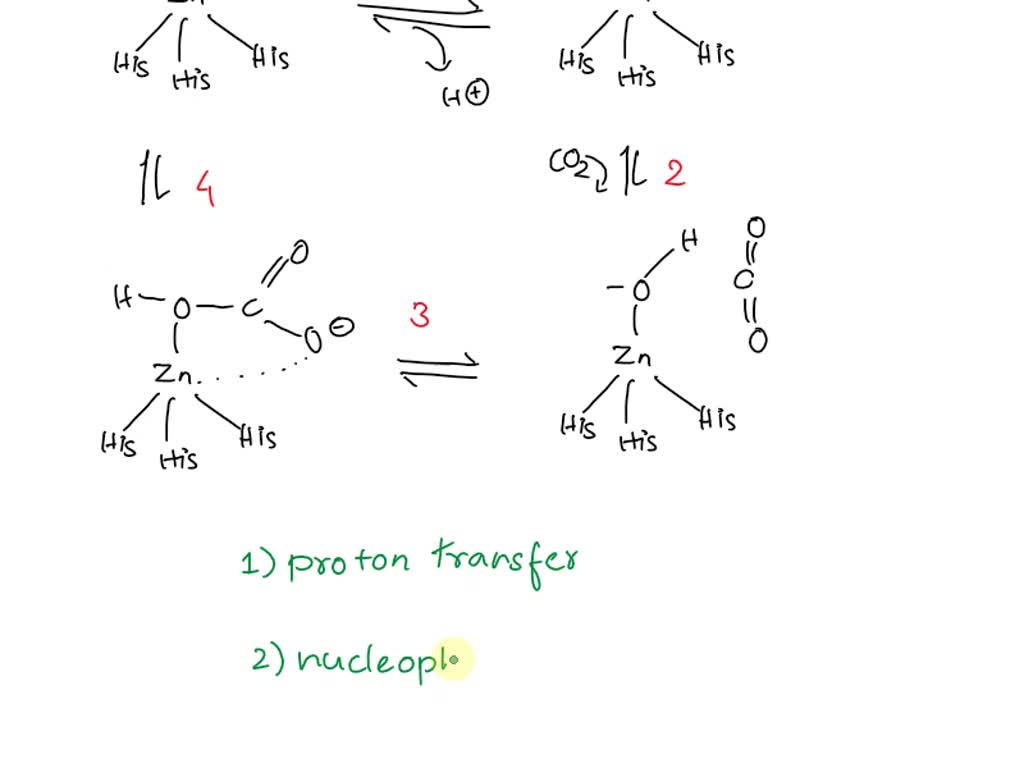 Zn
His His His
His His His
H⊕
4
CO2 2
O
H
O
H-O-C
-O
C
O⊖
3
O
Zn
Zn
His His His
His His His
1) proton transfer
2) nucleoph